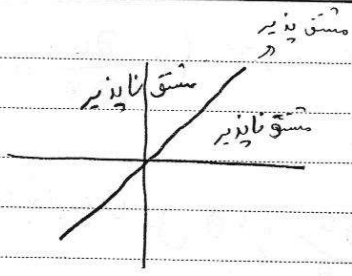 مشتق پذیر
مشتق ناپذیر
مشتق ناپذیر